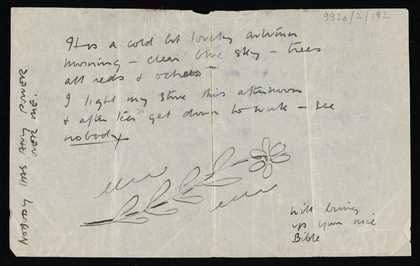 9320/2/182
It is a cold but lovely autumn
morning – clear blue sky – trees
all reds & ochres –
I light my stove this afternoon
& after tea get down to work – see
nobody
will bring
ups your nice
Bible
near me.